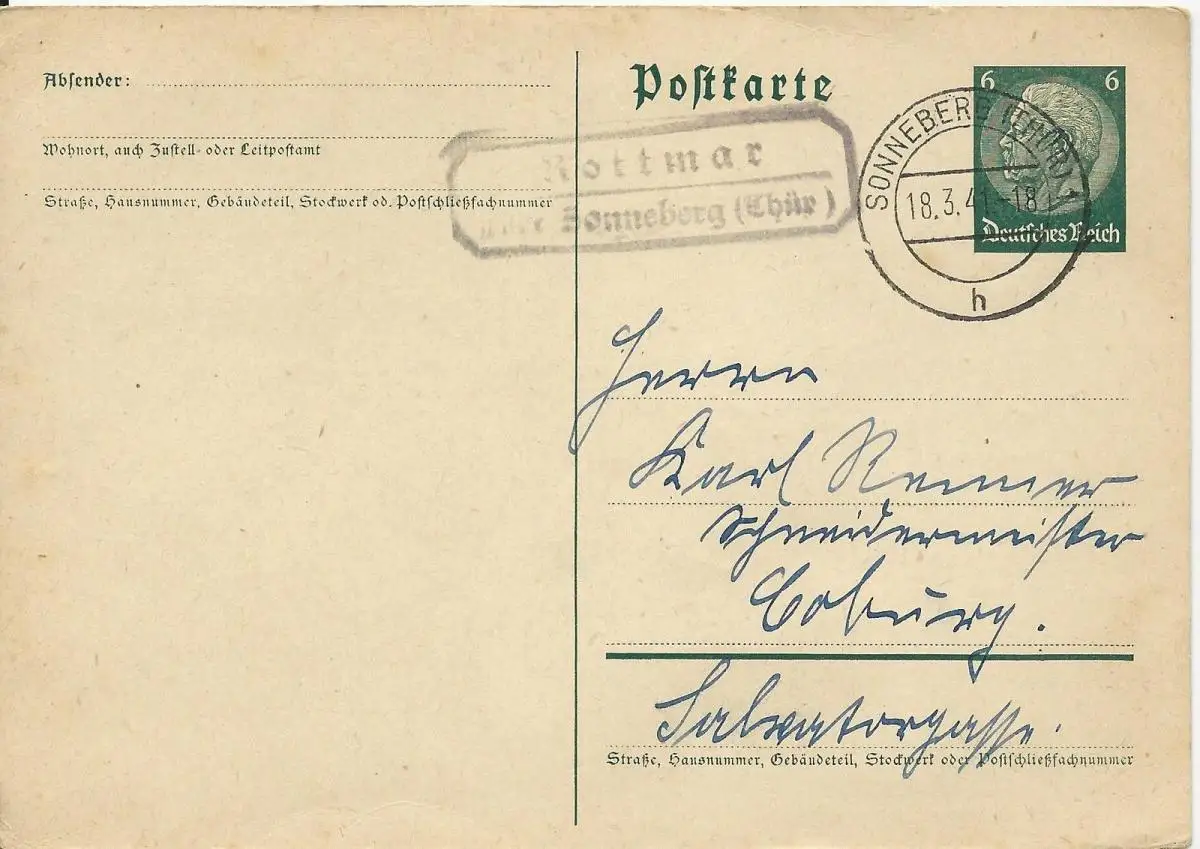 Absender:
Wohnort, auch Zustell- oder Leitpostamt
Straße, Hausnummer, Gebäudeteil, Stockwerk od. Postschließfachnummer
Postkarte
Rottmar
über Sonneberg (Thür)
SONNEBERG (THÜR) 1
18.3.41-18
h
6 6
Deutsches Reich
Herrn
Karl Renner
Schneidermeister
Coburg.
Salvatorgasse.
Straße, Hausnummer, Gebäudeteil, Stockwerk oder Postschließfachnummer